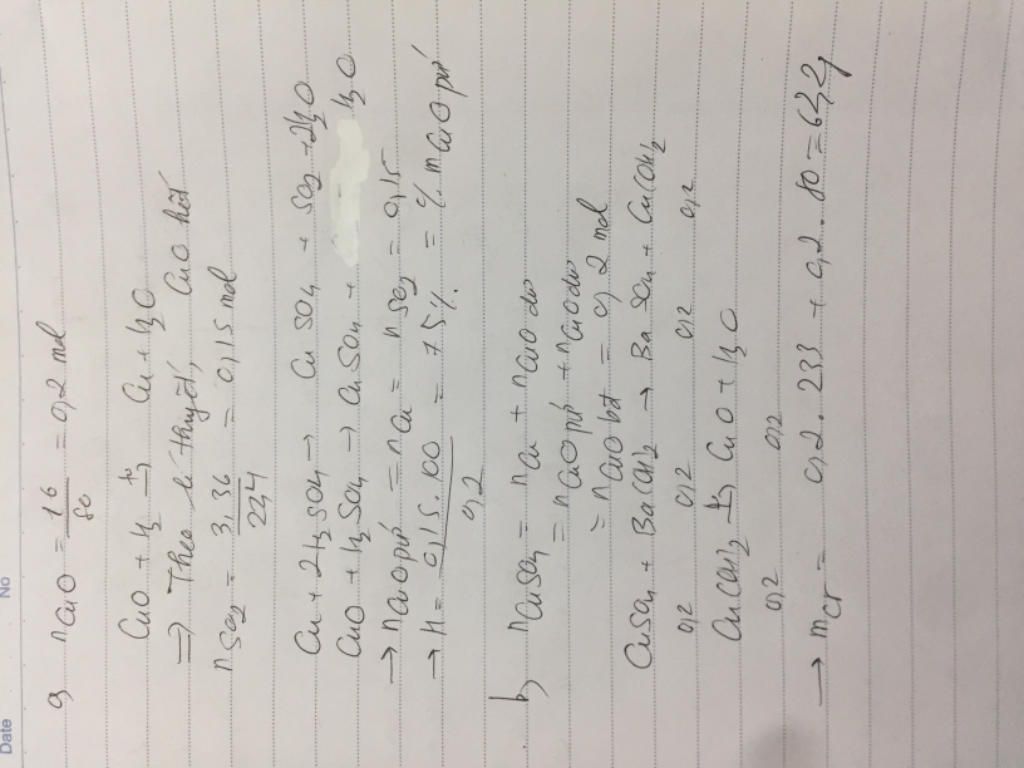 Date No
a, nCuO = 16/80 = 0,2 mol
CuO + H2 t°→ Cu + H2O
=> Theo lí thuyết, CuO hết
nSO2 = 3,36/22,4 = 0,15 mol
Cu + 2H2SO4 → CuSO4 + SO2 + 2H2O
CuO + H2SO4 → CuSO4 + H2O
→ nCuO pứ = nCu = nSO2 = 0,15
→ H = 0,15.100/0,2 = 75% = % mCuO pứ
b, nCuSO4 = nCu + nCuO dư
= nCuO pứ + nCuO dư
= nCuO bđ = 0,2 mol
CuSO4 + Ba(OH)2 → BaSO4 + Cu(OH)2
0,2 0,2 0,2 0,2
Cu(OH)2 t°→ CuO + H2O
0,2 0,2
→ mcr = 0,2.233 + 0,2.80 = 62,2g